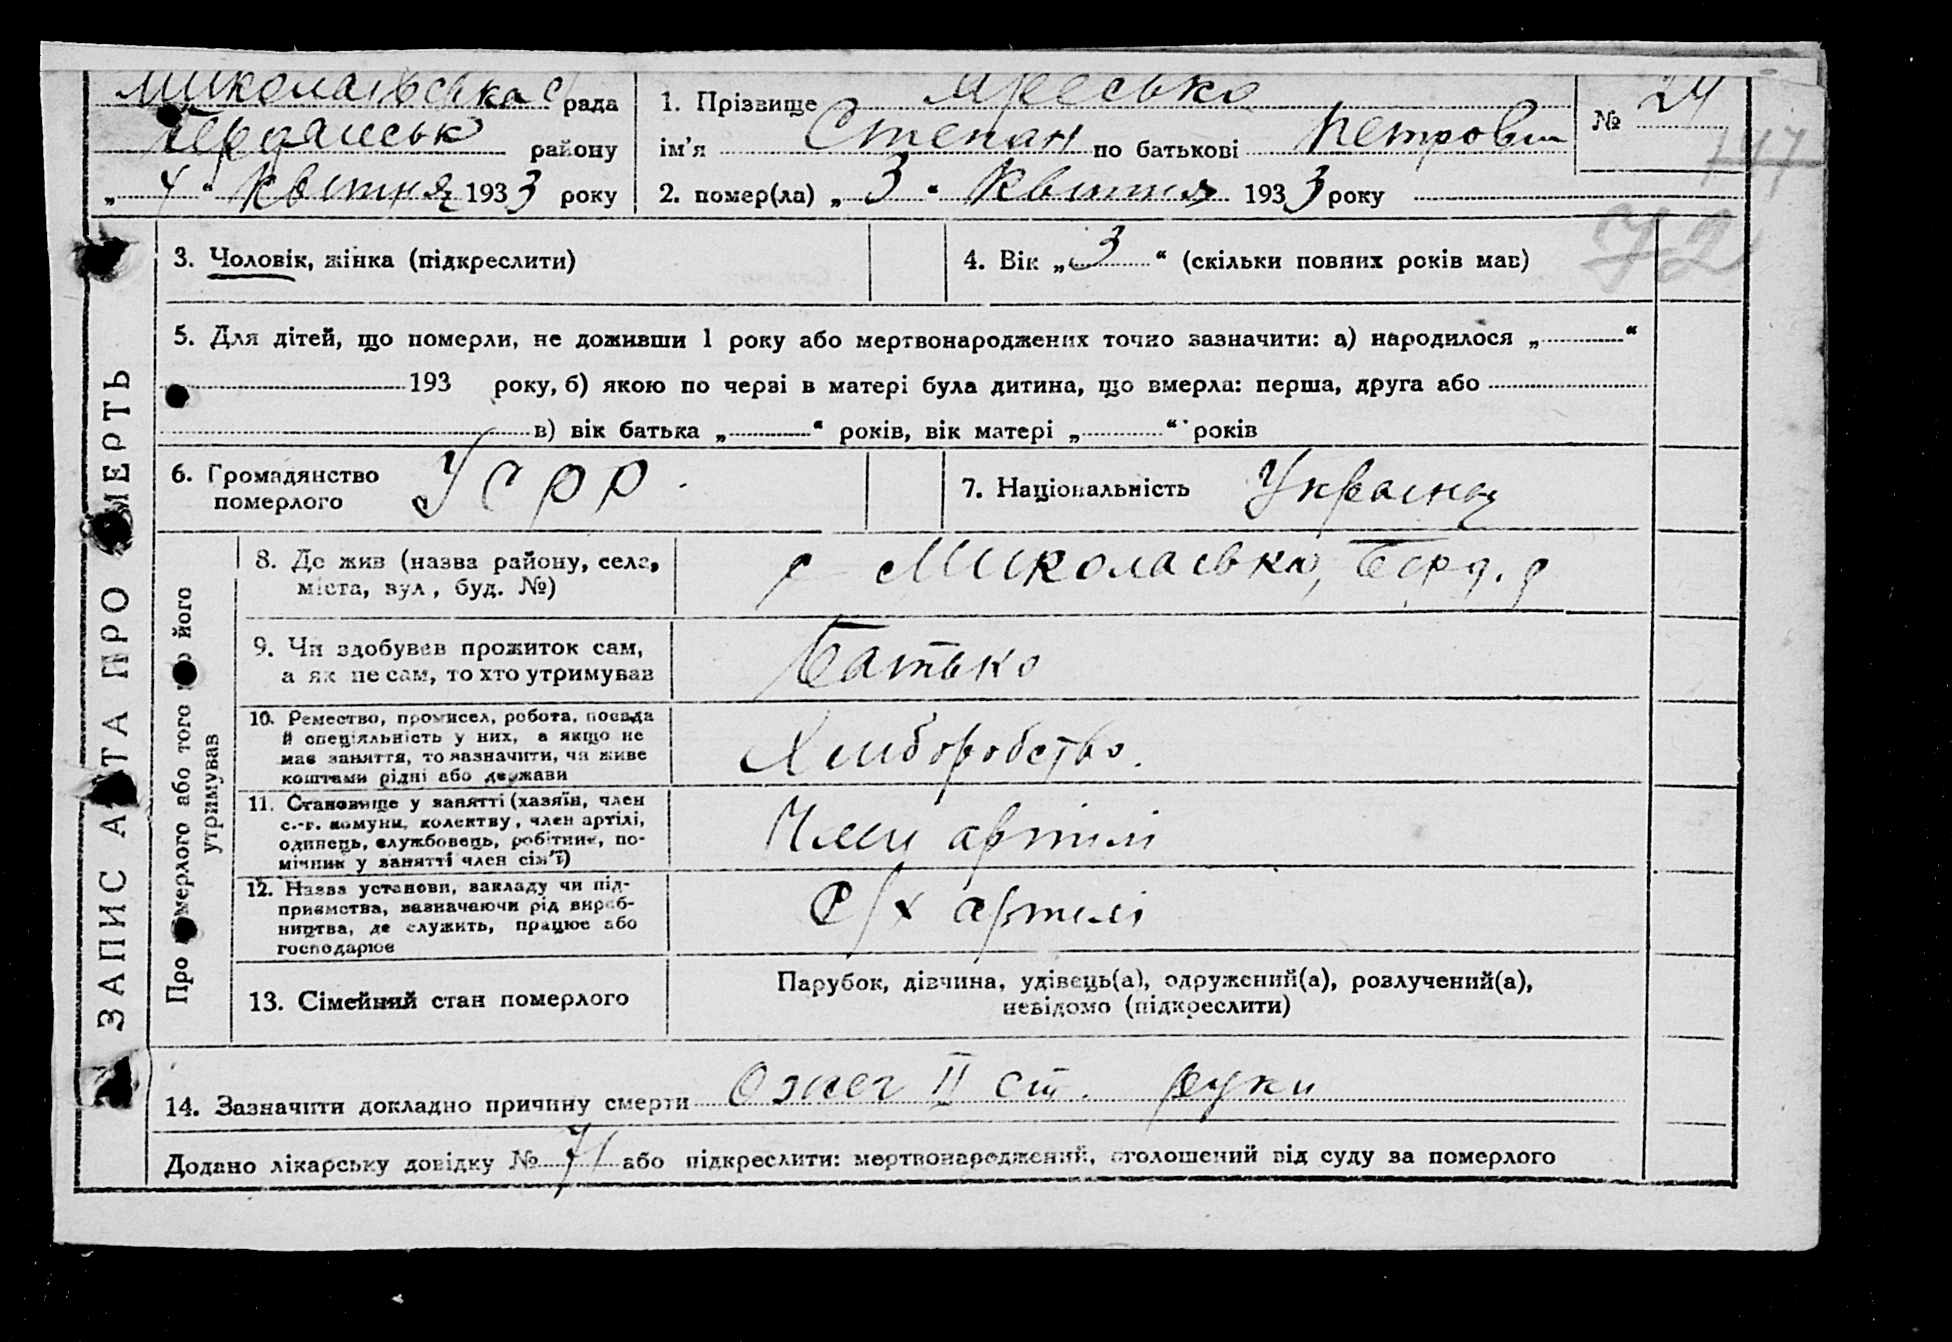 Миколаївська с/рада
Бердянськ району
„4“ квітня 1933 року
1. Прізвище Яресько
ім’я Степан по батькові Петрович
2. помер(ла) „3“ Квітня 1933 року
№ 24
147
72
3. Чоловік, жінка (підкреслити)
4. Вік „3“ (скільки повних років має)
5. Для дітей, що померли, не доживши 1 року або мертвонароджених точно зазначити: а) народилося „ “
193 року, б) якою по черзі в матері була дитина, що вмерла: перша, друга або
в) вік батька „ “ років, вік матері „ “ років
6. Громадянство
померлого
УСРР.
7. Національність Українец
ЗАПИС АКТА ПРО СМЕРТЬ
Про померлого або того хто його
утримував
8. Де жив (назва району, села,
міста, вул., буд. №)
с Миколаївка, Берд. р
9. Чи здобував прожиток сам,
а як не сам, то хто утримував
Батько
10. Ремество, промисел, робота, посада
й спеціяльність у них, а якщо не
має заняття, то зазначити, чи живе
коштами рідні або держави
Хліборобство.
11. Становище у занятті (хазяїн, член
с.-г. комуни, колектву, член артілі,
одинець, службовець, робітник, по-
мічник у занятті член сім’ї)
Член артілі
12. Назва установи, закладу чи під-
приємства, зазначаючи рід вироб-
ництва, де служить, працює або
господарює
С/х артілі
13. Сімейний стан померлого
Парубок, дівчина, удівець(а), одружений(а), розлучений(а),
невідомо (підкреслити)
14. Зазначити докладно причину смерти Ожег II ст. руки
Додано лікарську довідку № 71 або підкреслити: мертвонароджений, оголошений від суду за померлого